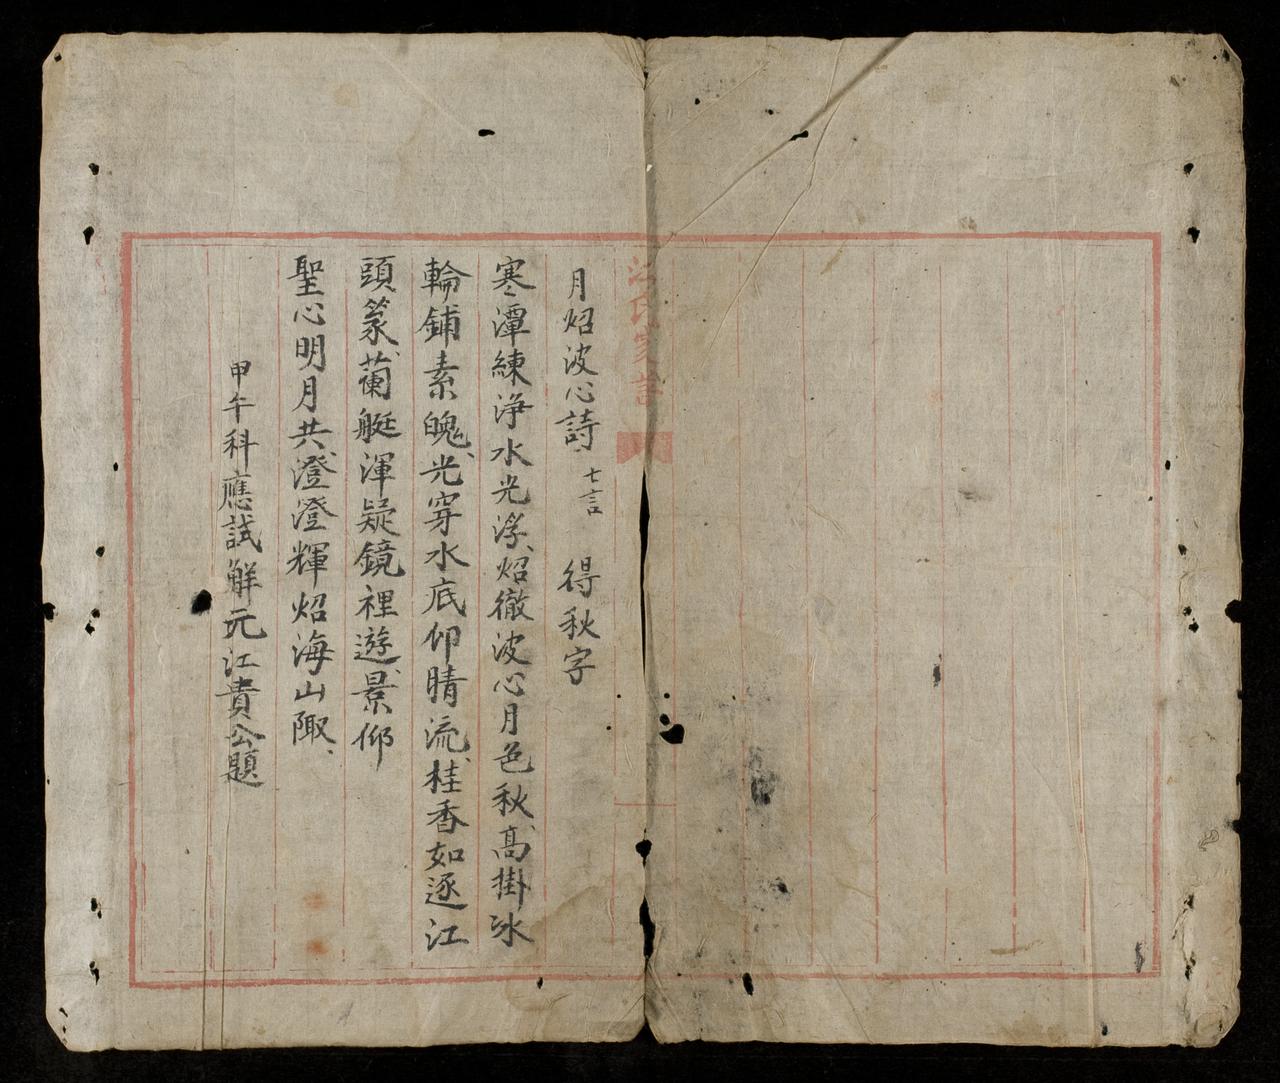 月炤波心詩 七言 得秋字
寒潭練淨水光浮、炤徹波心月色秋、高掛氷
輪鋪素魄、光穿水底仰晴流、桂香如逐江
頭篆、蘭艇渾疑鏡裡遊、景仰
聖心明月共、澄澄輝炤海山陬、
甲午科應試解元江貴公題